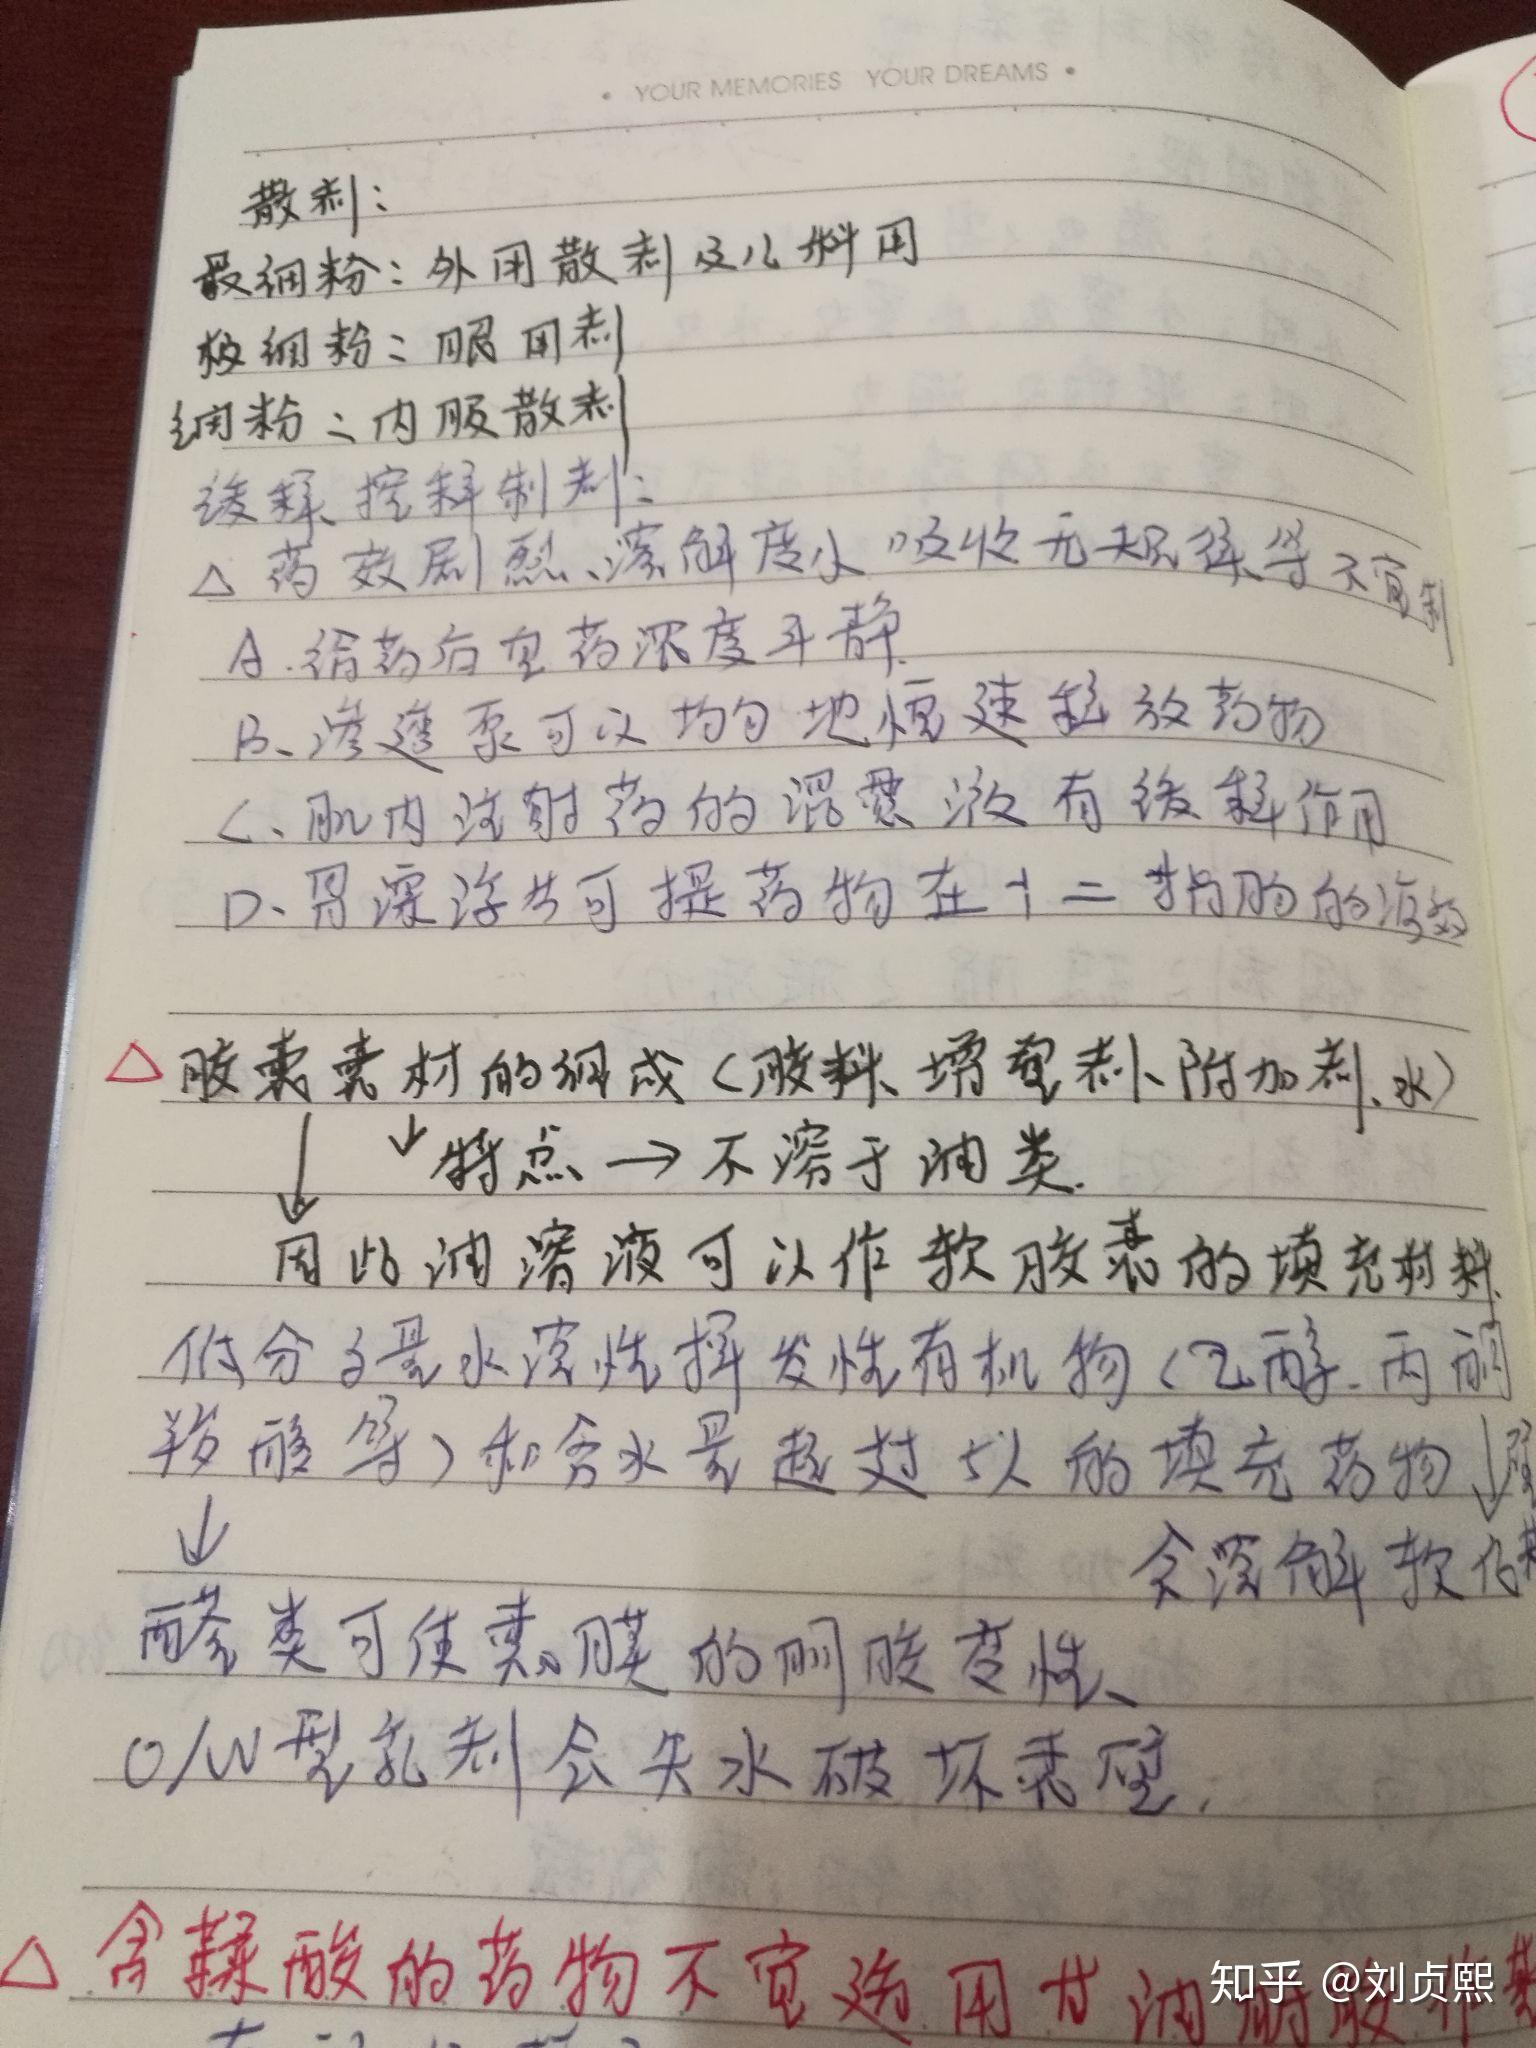 • YOUR MEMORIES YOUR DREAMS •
散剂:
最细粉:外用散剂及儿科用
极细粉:眼用剂
细粉:内服散剂
缓释、控释制剂:
△药效剧烈、溶解度小 吸收无规律等不宜制
A.给药后血药浓度平静.
B、渗透泵可以均匀地恒速释放药物
C、肌内注射药的混悬液有缓释作用
D、胃漂浮片可提药物在十二指肠的
△胶囊囊材的组成(胶料、增塑剂、附加剂、水)
↓ ↓特点→不溶于油类.
因此油溶液可以作软胶囊的填充材料.
低分子量水溶性挥发性有机物(乙醇.丙酮
羧酸等)和含水量超过5%的填充药物 ↓
↓ 会溶解软
醛类可使囊膜的明胶变性、
O/W型乳剂会失水破坏囊壁.
△含鞣酸的药物不宜选用甘油明胶作
知乎 @刘贞熙